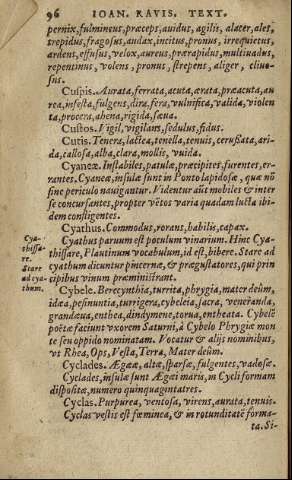 96 IOAN. RAVIS. TEXT.
pernix, fulmineus, præceps, auidus, agilis, alater, ales,
trepidus, fragosus, audax, incitus, pronus, irrequietus,
ardens, effusus, velox, aureus, prærapidus, multiuadus,
repentinus, volens, pronus, strepens, aliger, cliuo-
sus.
Cuspis. Aurata, ferrata, acuta, ærata, præacuta, au
rea, infesta, fulgens, dira, fera, vulnifica, valida, violen
ta, procera, ahena, rigida, sæua.
Custos. Vigil, vigilans, sedulus, fidus.
Cutis. Tenera, lactea, tenella, tenuis, cerussata, ari-
da, callosa, alba, clara, mollis, vuida.
Cyaneæ. Instabiles, pauulæ, præcipites, furentes, er-
rantes. Cyaneæ, insulæ sunt in Ponto lapidosæ, quæ nõ
sine periculo nauigantur. Videntur aũt mobiles & inter
se concursantes, propter võtos varia quadam lucta ibi-
dem confligentes.
Cyathus. Commodus, rorans, habilis, capax.
Cyathus paruum est potulum vinarium. Hinc Cya-
thissare, Plautinum vocabulum, id est, bibere. Stare ad
cyathum dicuntur pincernæ, & prægustatores, qui prin
cipibus vinum præministrant.
Cya-
thissa-
re.
Stare
ad cya-
thum.
Cybele. Berecynthia, turrita, phrygia, mater deûm,
idæa, pesinuntia, turrigera, cybeleia, sacra, veneranda,
grandæua, enthea, dindymene, torua, entheata. Cybelẽ
poëtæ faciunt vxorem Saturni, à Cybelo Phrygiæ mon
te seu oppido nominatam. Vocatur & alijs nominibus,
vt Rhea, Ops, Vesta, Terra, Mater deûm.
Cyclades. Ægææ, altæ, sparsæ, fulgentes, vadosæ.
Cyclades, insulæ sunt Ægæi maris, in Cycli formam
dispositæ, numero quinquagintatres.
Cyclas. Purpurea, ventosa, virens, aurata, tenuis.
Cyclas vestis est fœminea, & in rotunditatẽ forma-
ta. Si-